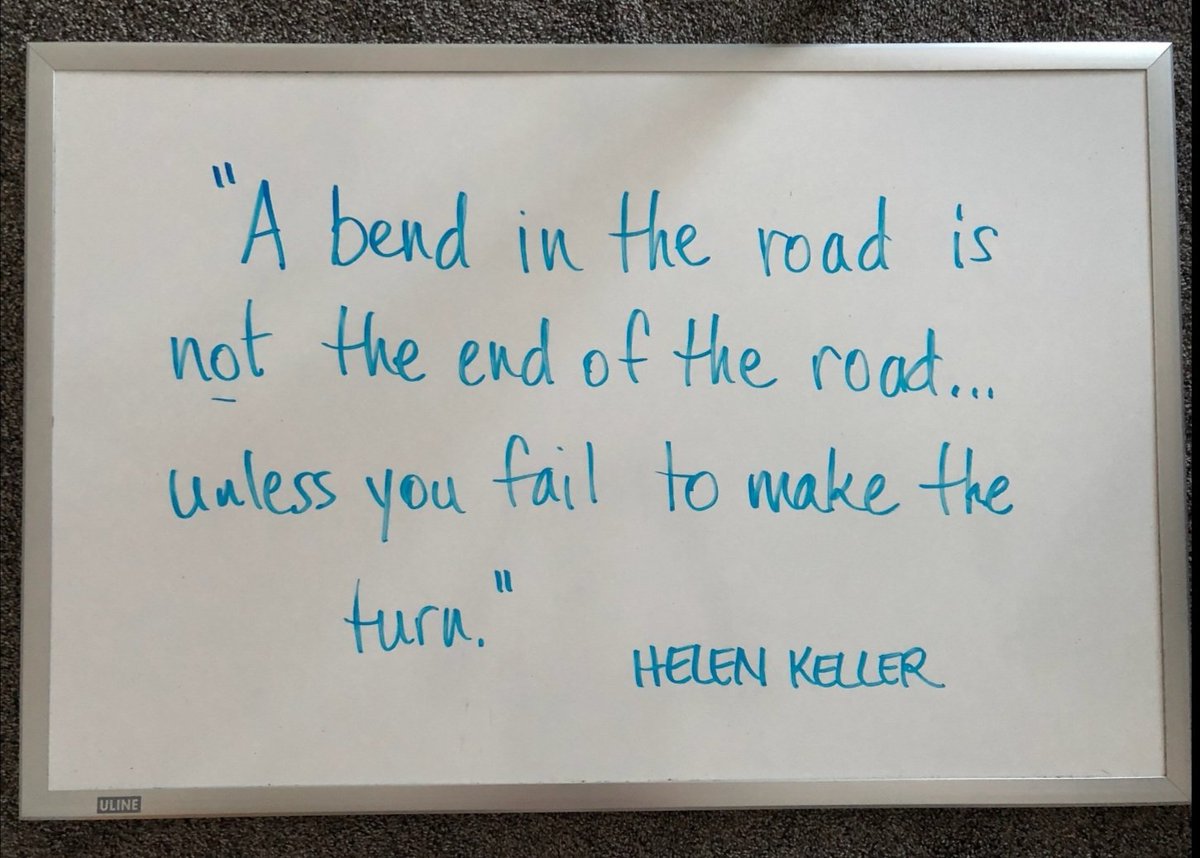 "A bend in the road is
not the end of the road...
unless you fail to make the
turn."
HELEN KELLER
ULINE